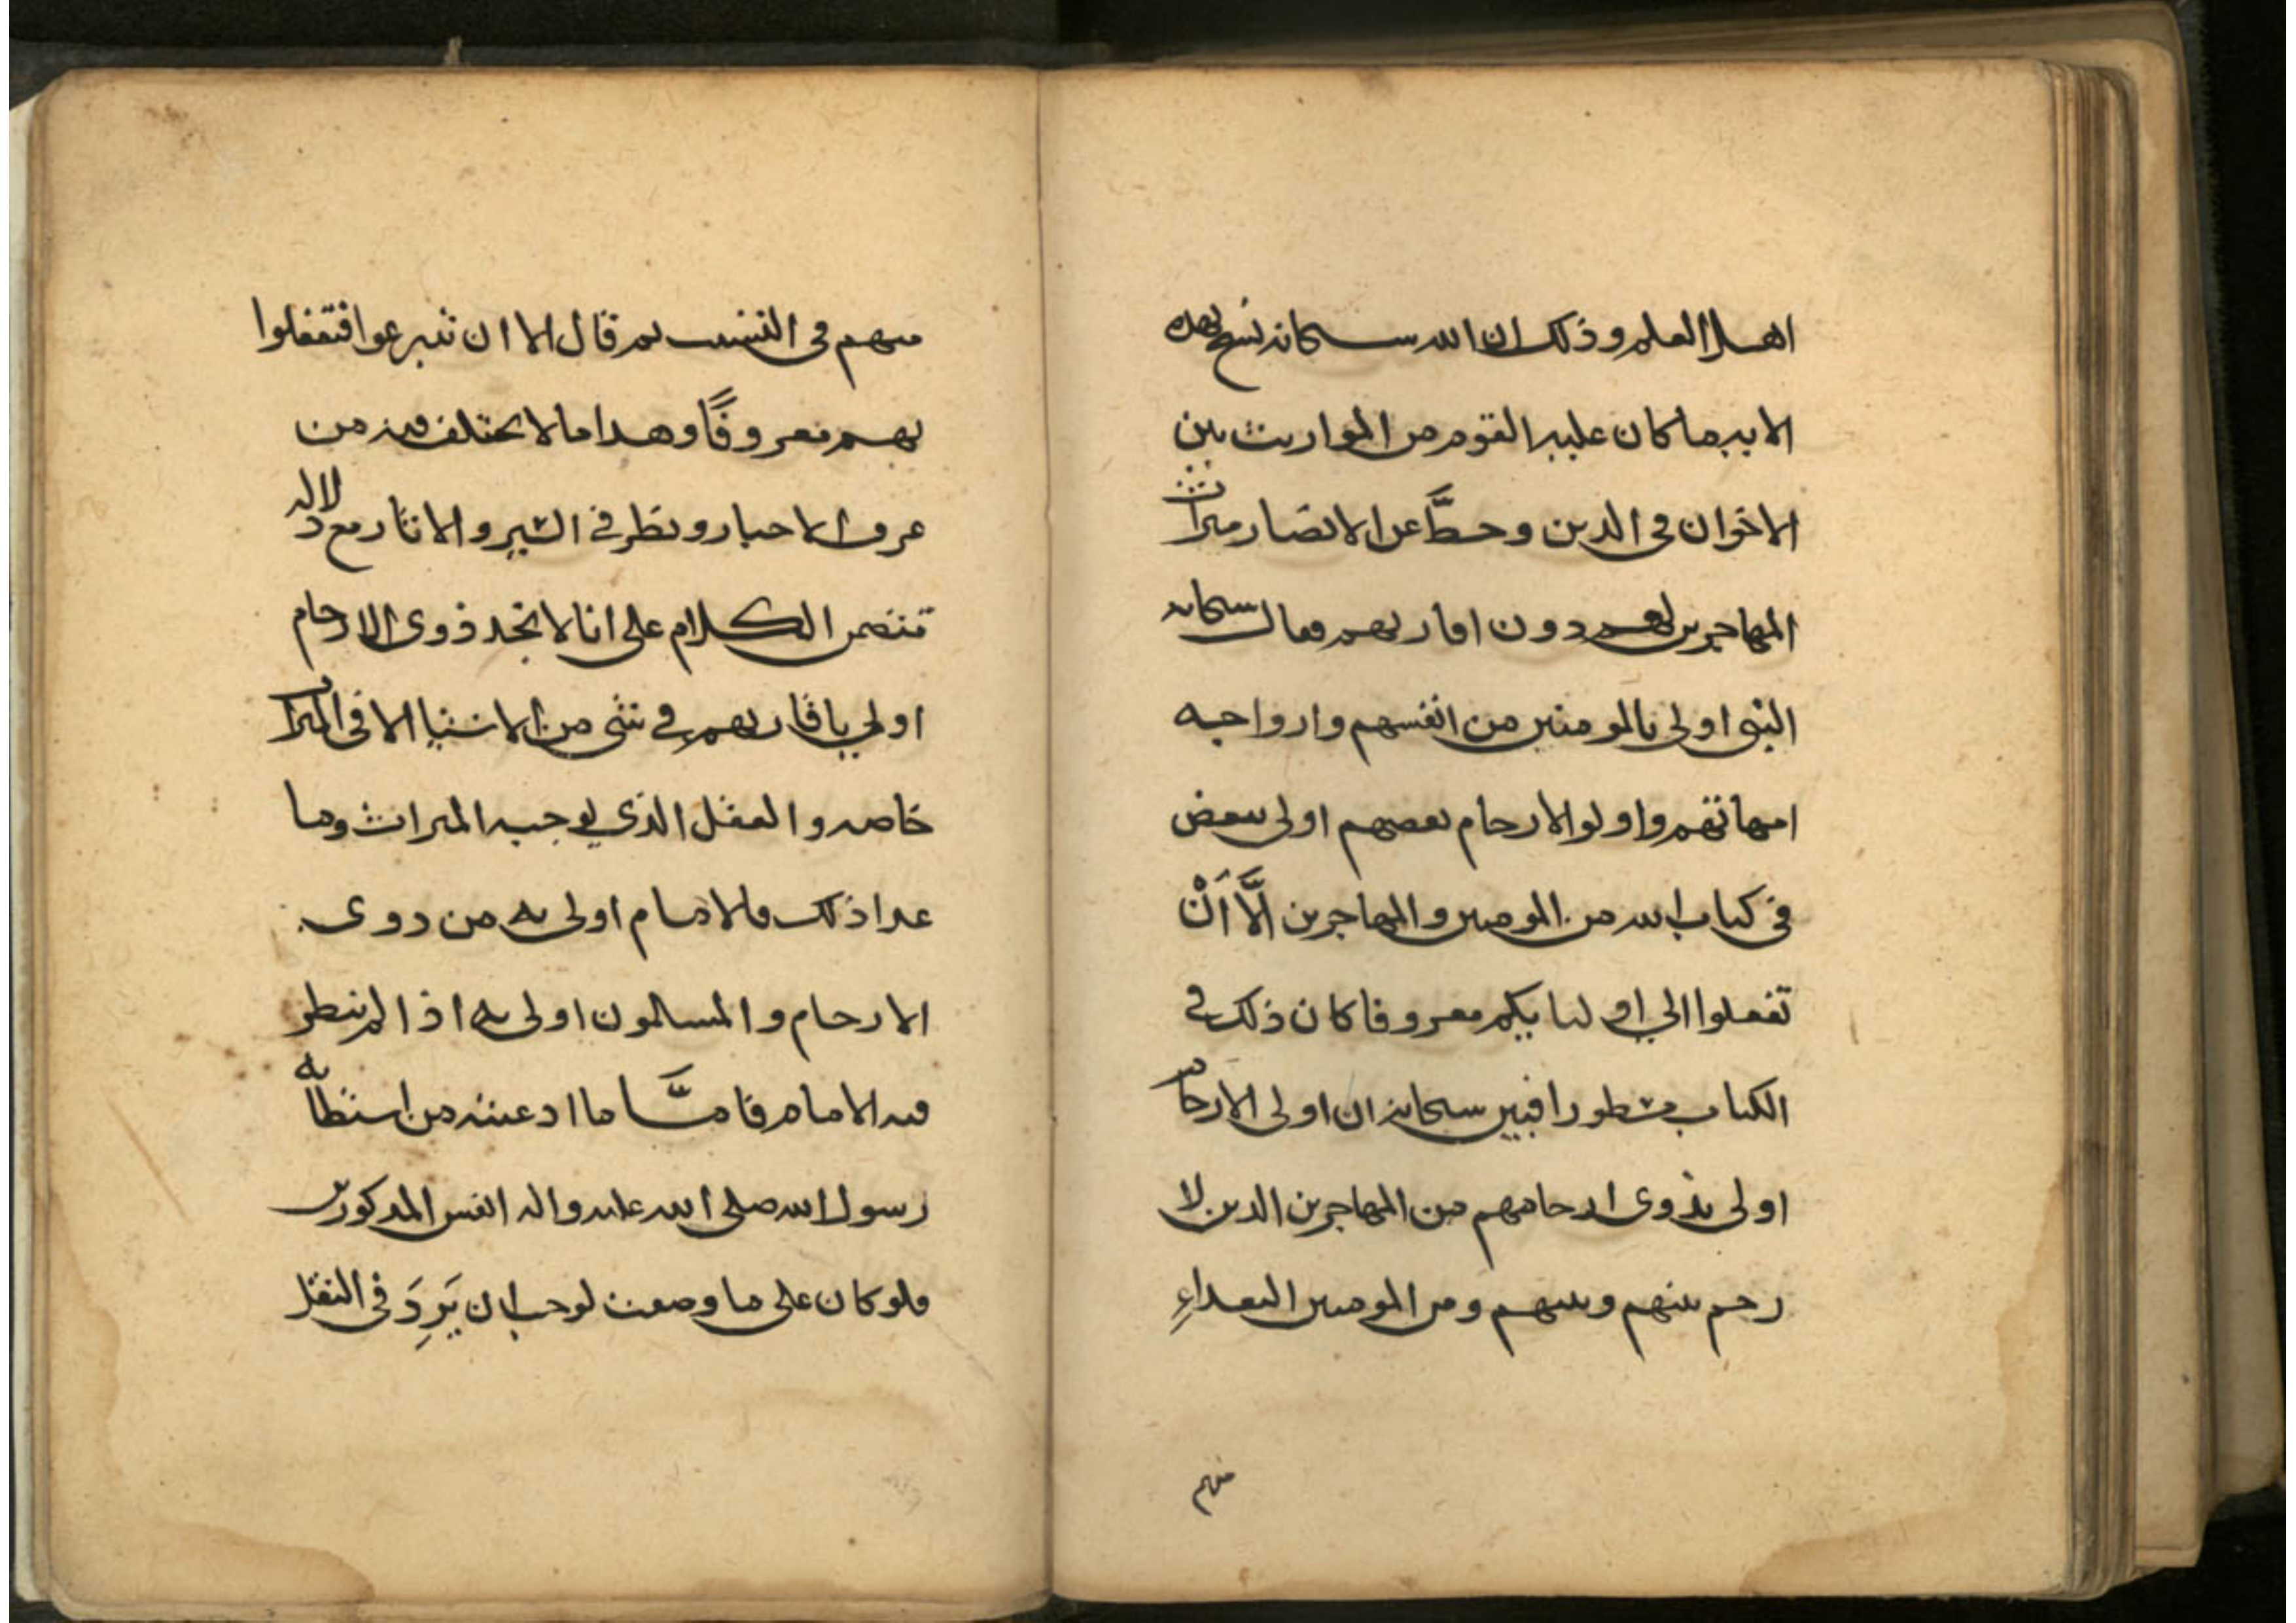 اهل العلم وذلك ان الله سبحانه نسخ بهذه
الايه ما كان عليه القوم من المواريث بين
الاخوان في الدين وحطَّ عن الانصار ميراث
المهاجرين لهم دون اقاربهم فقال سبحانه
النبي اولى بالمومنين من انفسهم وازواجه
امهاتهم واولوا الارحام بعضهم اولى ببعض
في كتاب الله من المومنين والمهاجرين اِلَّا اَنْ
تفعلوا الي اوليايكم معروفا كان ذلك في
الكتاب مسطورا فبين سبحانه ان اولى الارحام
اولى بذوي ارحامهم من المهاجرين الذين لا
رحم بينهم وبينهم ومن المومنين البعداءِ
منهم
منهم في النسب ثم قال الا ان تتبرعوا فتفعلوا
بهم معروفًا وهذا ما لا يختلف فيه من
عرف الاخبار ونظر في السير والاثار مع دلاله
تتضمن الكلام على انا لا نجد ذوي الارحام
اولي باقاربهم في شي من الاشيا الا في الميراث
خاصه والعقل الذي يوجبه الميراث وما
عدا ذلك فالامام اولى به من ذوى
الارحام والمسلمون اولى به اذا لم ينظر
فيه الامام فامَّا ما ادعيته من استظلاله
رسول الله صلى الله عليه واله انفس المذكورين
فلو كان على ما وصفت لوجب ان يَرِدَ في النقل